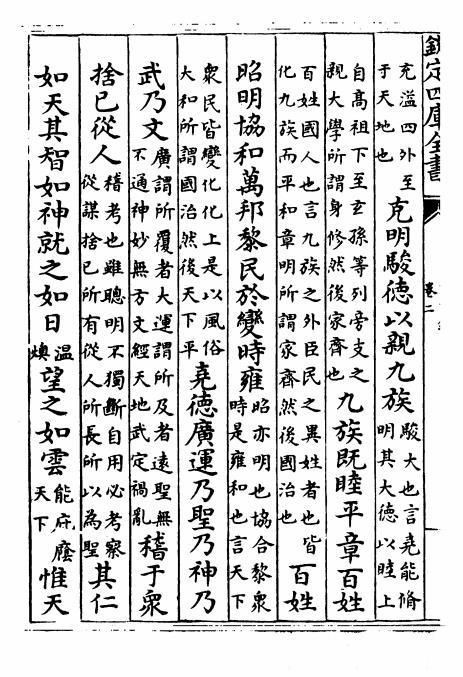 欽定四庫全書
卷二
充溢四外至
于天地也
克明駿德以親九族
駿大也言堯能脩
明其大德以睦上
自高祖下至玄孫等列旁支之
親大學所謂身修然後家齊也
九族既睦平章百姓
百姓國人也言九族之外臣民之異姓者也皆
化九族而平和章明所謂家齊然後國治也
百姓
昭明協和萬邦黎民於變時雍
昭亦明也協合黎衆
時是雍和也言天下
衆民皆變化化上是以風俗
大和所謂國治然後天下平
堯德廣運乃聖乃神乃
武乃文
廣謂所覆者大運謂所及者遠聖無
不通神妙無方文經天地武定禍亂
稽于衆
捨已從人
稽考也雖聰明不獨斷自用必考察
從謀捨已所有從人所長所以為聖
其仁
如天其智如神就之如日
溫
燠
望之如雲
能庇廕
天下
惟天